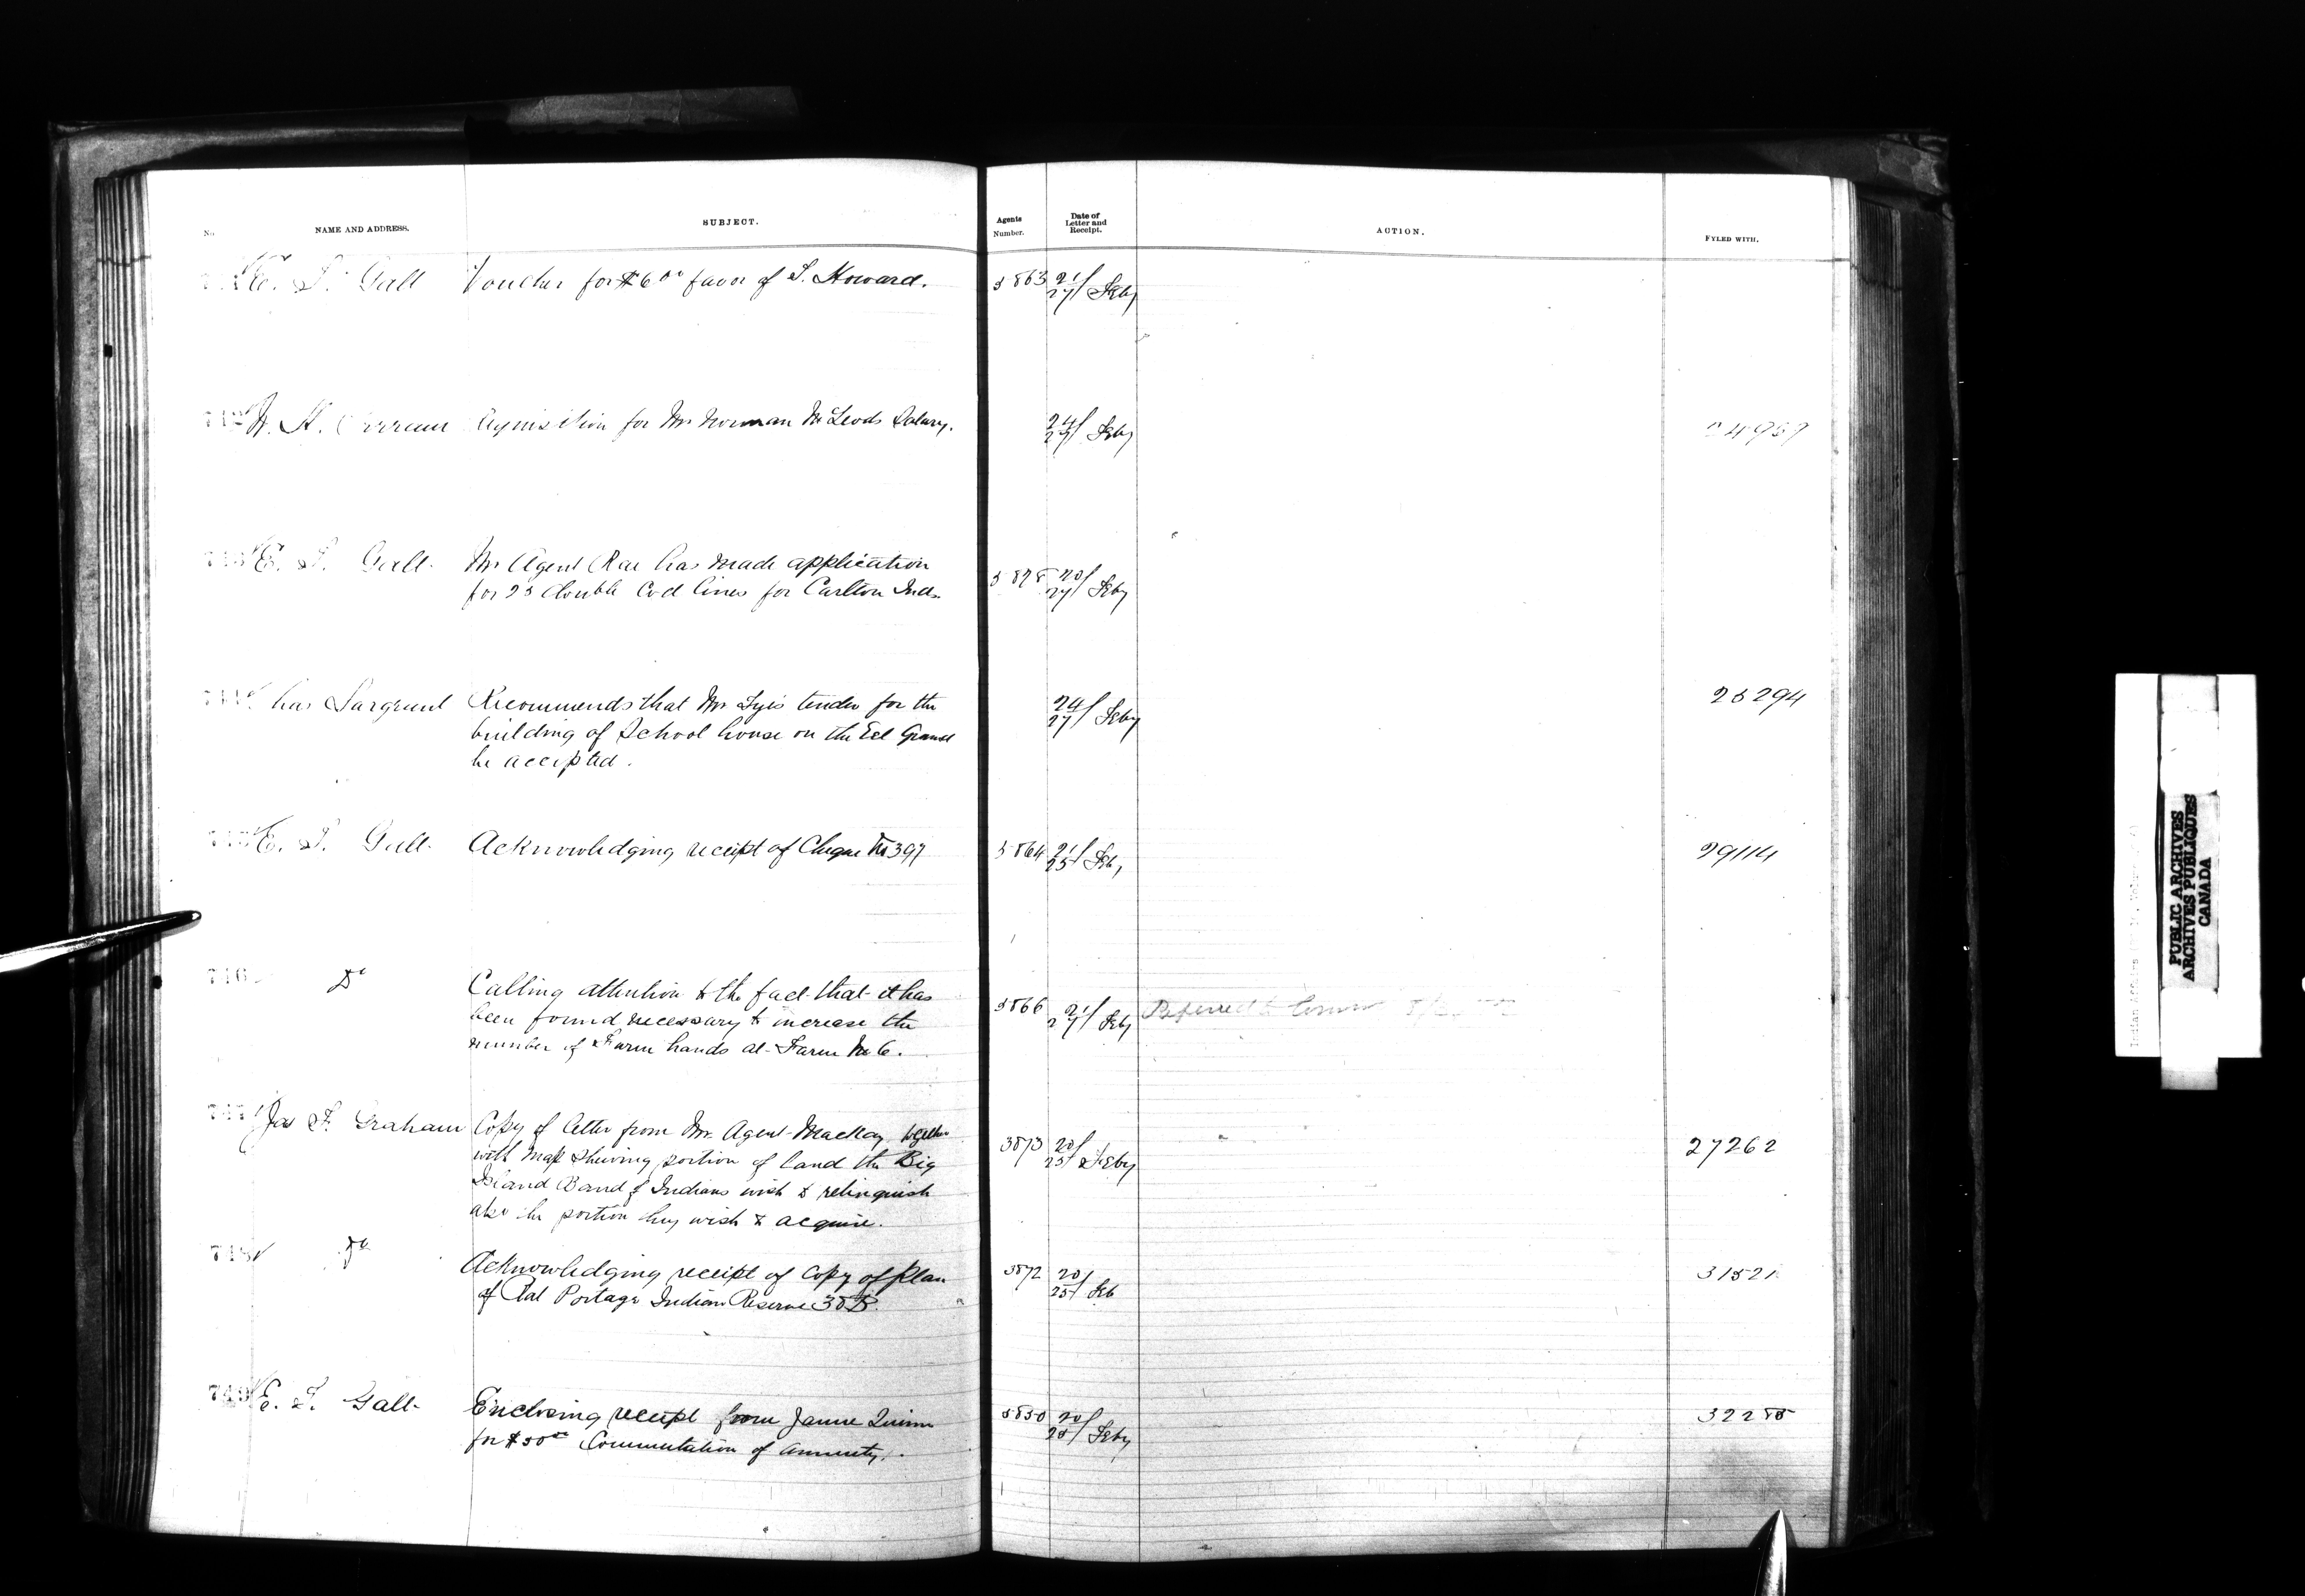 No. NAME AND ADDRESS. SUBJECT. Agents Number. Date of Letter and Receipt. ACTION. FYLED WITH.
E. T. Galt Voucher for $6 00 favor of S. Howard. 21/27 Feby
for Mr Norman McLeods Salary. 24/27 Feby
E. T. Galt Mr Agent Rae has made application 20/27 Feby
for 25 double Cod lines for Carlton Inds
Chas Sargent Recommends that Mr tender for the 24/27 Feby
building of School house on the Eel Ground
be accepted.
E. T. Galt Acknowledging receipt of Cheque No 397 21/25 Feby 29114
746 Do Calling attention to the fact that it has 21/27 Feby Referred to
been found necessary to increase the
number of Farm hands at Farm No 6.
747 Jas F. Graham Copy of letter from Mr. Agent Mackay together 20/25 Feby 27262
with Map shewing portion of land the Big
Island Band of Indians wish to relinquish
also the portion they wish to acquire.
748 Do Acknowledging receipt of Copy of Plan 20/25 Feb
of Rat Portage Indian Reserve 38B.
749 E. T. Galt Enclosing receipt from Quinn 20/25 Feby
for $50 00 Commutation of annuity.
PUBLIC ARCHIVES
ARCHIVES PUBLIQUES
CANADA